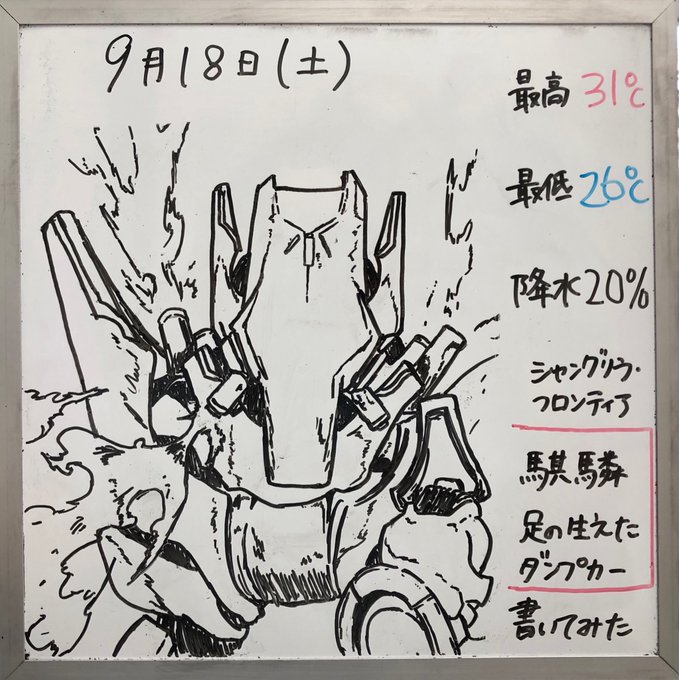 9月18日(土)
最高 31℃
最低 26℃
降水 20%
シャングリラ・
フロンティア
騏驎
足の生えた
ダンプカー
書いてみた